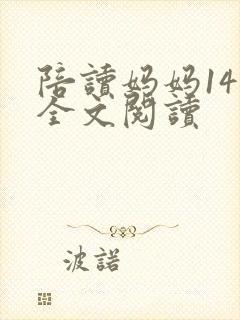 陪讀妈妈14
全文閱讀
波諾